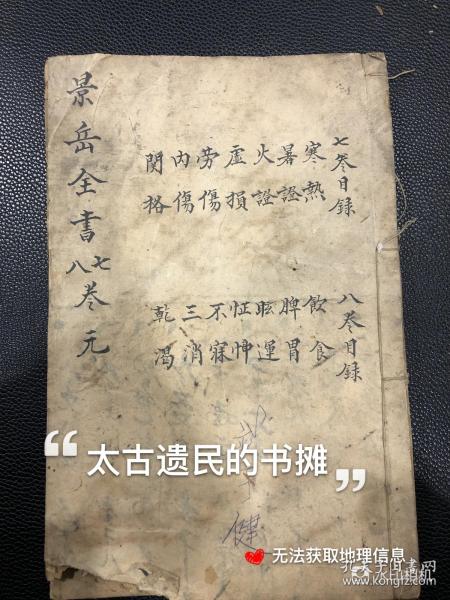 七叅目錄
寒熱
暑證
火證
虛損
勞傷
內傷
関格
八叅目錄
飲食
脾胃
眩運
怔忡
不寐
三消
乾渴
景岳全書
七八叅元
健
“太古遗民的书摊”
无法获取地理信息
水印相机
www.kongfz.com